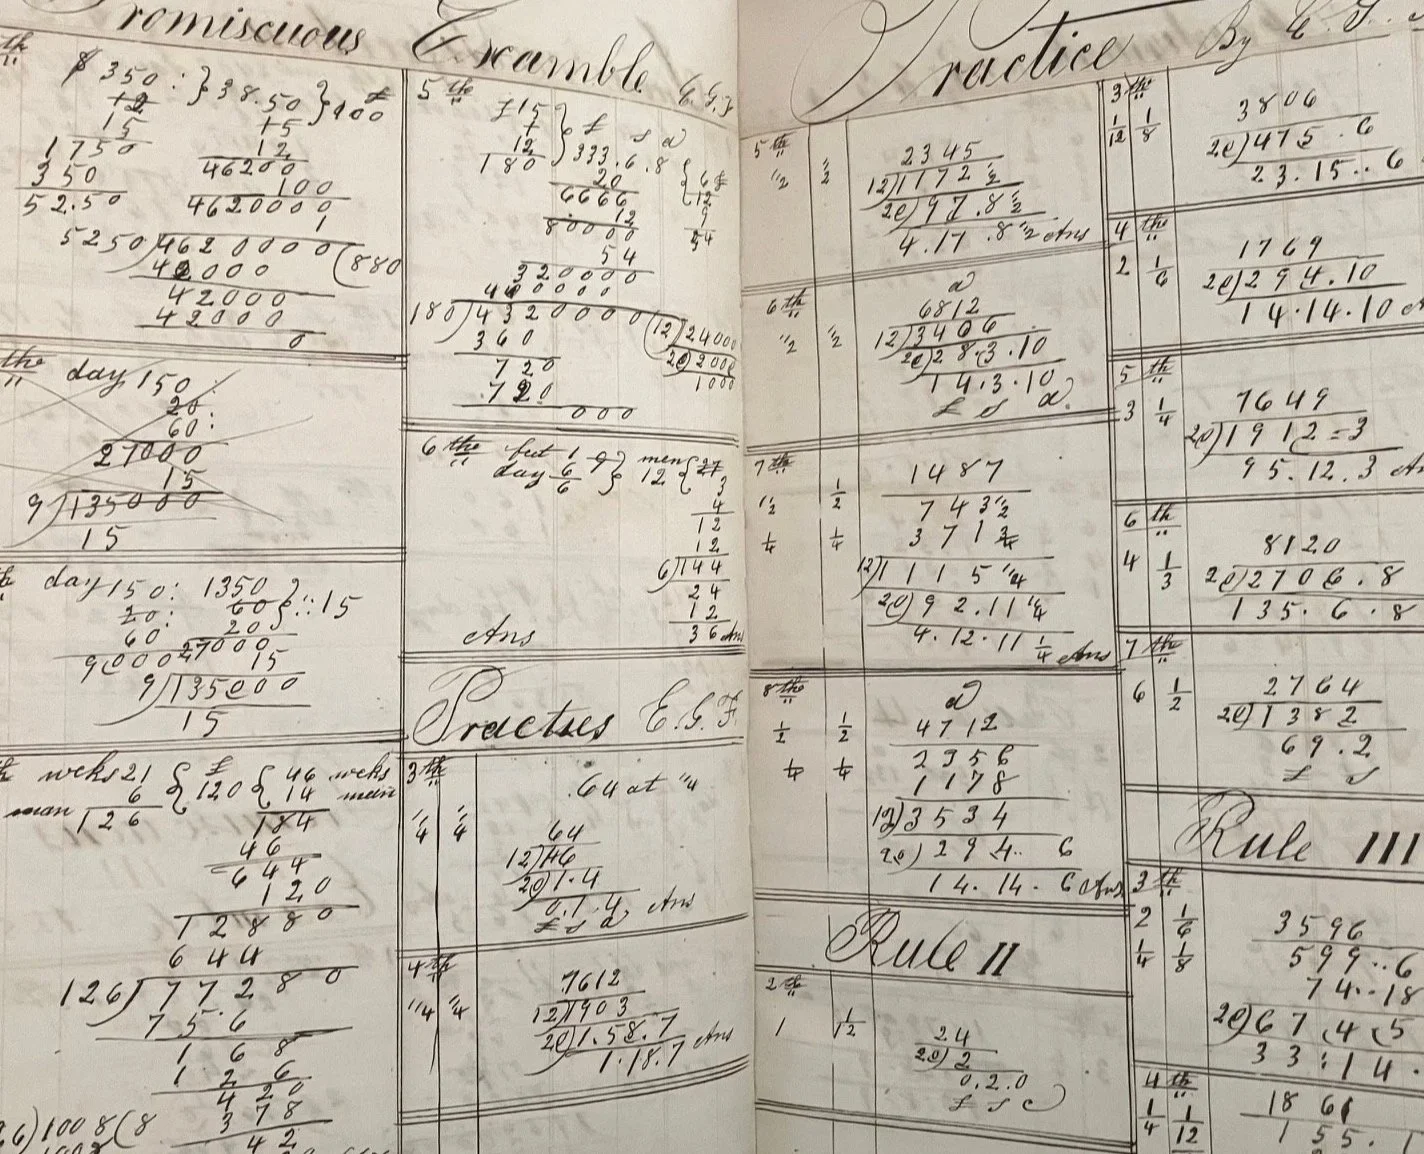 Promiscuous Examble E.G.F
th
$ 350 : } 38.50 } 100
12 15
15 12
1750 46200
350 100
52.50 4620000
1
5250)4620000(880
42000
42000
42000
0
the day 150 :
20 :
60 :
27000
15
9)135000
15
day 150 : 1350 } :: 15
20 : 60
60 20
9000 27000
15
9)135000
15
weks 21 { £ { 46 weks
man 6 { 120 { 14 men
126 184
46
644
120
12880
644
126)77280
756
168
126
420
378
42
1008(8
5th
£15 } £ s d
1
12 } 333.6.8
180 20 { 6 £
6666 12
12 9
80000 54
54
320000
400000
180)4320000(12)24000
360 20)2000
720 1000
720
000
6the feet 1 9 } men { 27
day 6 } 12 { 3
6 4
12
12
6)144
24
12
Ans 36 Ans
Practies E.G.F
3th
64 at "4
1/4 1/4 64
12)16
20)1.4
0.1.4 Ans
£ s d
4th
7612
"4 "4 12)1903
20)1.58.7
1.18.7 Ans
Practice By E.
5the
2345
"2 1/2 12)1172 1/2
20)97.8 1/2
4.17.8 "2 Ans
6th
d
6812
"2 "2 12)3406
20)28-3.10
14.3.10
£ s d.
7th
1487
1/2 1/2 743 1/2
1/4 1/4 371 3/4
12)1115 "4
20)92.11 "4
4.12.11 1/4 Ans
8the
d
4712
1/2 1/2 2356
1/4 1/4 1178
12)3534
20)294.. 6
14.14.6 Ans
Rule II
2th
1 1/12 24
20)2
0.2.0
£ s
3th
3806
1/12 1/8 20)475.6
23.15..6
4the
1769
2 1/6 20)294.10
14.14.10
5th
7649
3 1/4 20)1912=3
95.12.3
6th
8120
4 1/3 20)2706.8
135.6.8
7th
2764
6 1/2 20)1382
69.2
£ s
Rule III
3th
2 1/6 3596
1/4 1/8 599..6
74..18
20)674.5
33:14.
4th
1/4 1/12 1861
155.1